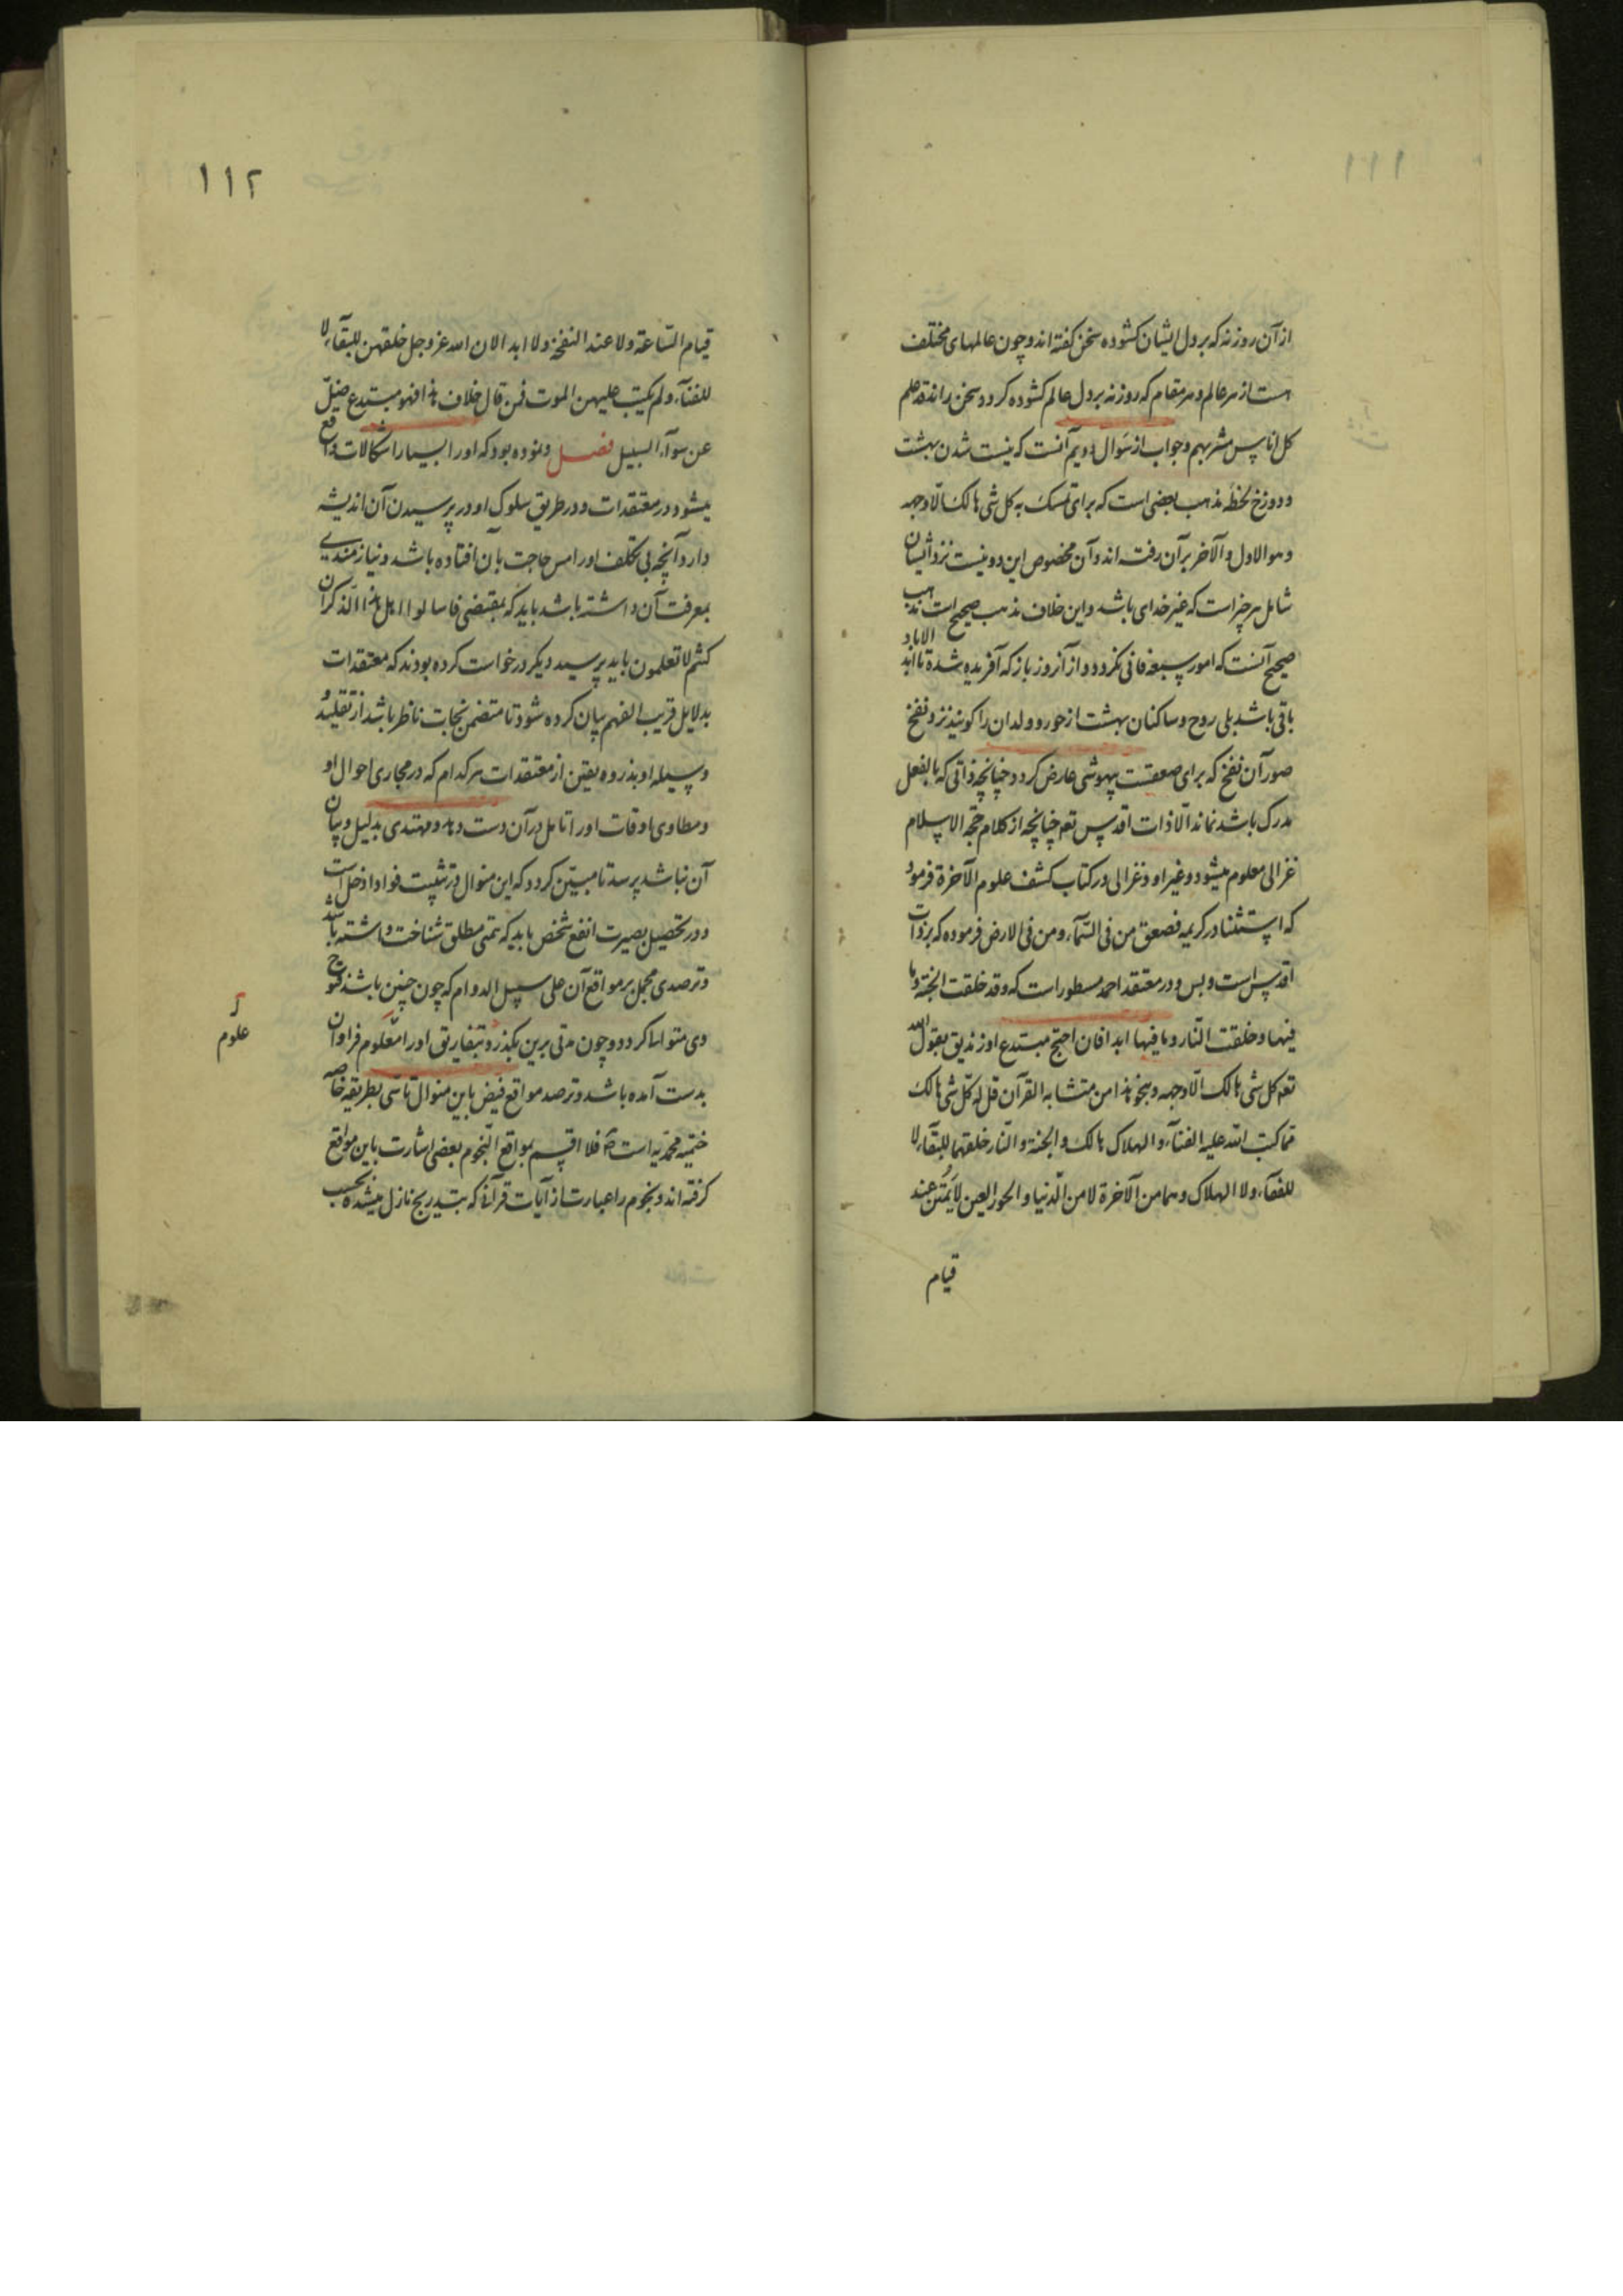 ۱۱۱
از آن روزنه که بر دل ایشان کشوده سخن کفته اند و چون عالمهای مختلف
هست از هر عالم و هر مقام که روزنه بر دل عالم کشوده کردد سخن راند قد علم
کل اناس مشربهم و جواب از سوال دویم آنست که نیست شدن بهشت
و دوزخ لحظه مذهب بعضی است که برای تمسک به کل شی هالک الا وجهه
و هو الاول و الآخر بر آن رفته اند و آن مخصوص این دو نیست نزد ایشان
شامل هر چیز است که غیر خدای باشد و این خلاف مذهب صحیح است مذهب
صحیح آنست که امور سبعه فانی نکردد و از آنروز باز که آفریده شده تا ابد الاباد
باقی باشد بلی روح و ساکنان بهشت از حور و ولدان را کویند نزد نفخ
صور آن نفخ که برای صعقست بیهوشی عارض کردد چنانچه ذاتی که بالفعل
مدرک باشد نماند الا ذات اقدس تعه چنانچه از کلام حجة الاسلام
غزالی معلوم میشود و غیر او و غزالی در کتاب کشف علوم الآخرة فرموده
که استثنا در کریمه فصعق من فی السمآء و من فی الارض فرموده که بر ذات
اقدس است و بس و در معتقد احمد مسطور است که و قد خلقت الجنة و ما
فیها و خلقت النار و ما فیها ابدا فان احتج مبتدع او زندیق بقول الله
تعه کل شی هالک الا وجهه و بنحو هذا من متشابه القرآن قل له کل شی هالک
مما کتب الله علیه الفنآء و الهلاک هالک و الجنة و النار خلقهما للبقآء لا
للفنآء و لا الهلاک و هما من الآخرة لا من الدنیا و الحور العین لا یمتن عند
قیام
۱۱۲
قیام الساعة و لا عند النفخة و لا ابدا لان الله عز و جل خلقهن للبقآء لا
للفنآء و لم یکتب علیهن الموت فمن قال خلاف هذا فهو مبتدع ضل
عن سوآء السبیل فصل و نموده بود که او را بسیار اشکالات واقع
میشود در معتقدات و در طریق سلوک او در پرسیدن آن اندیشه
دارد آنچه بی تکلف او را مس حاجت بآن افتاده باشد و نیازمندی
بمعرفت آن داشته باشد باید که بمقتضی فاسالوا اهل الذکر ان
کنتم لا تعلمون باید پرسید دیکر درخواست کرده بودند که معتقدات
بدلایل قریب الفهم بیان کرده شود تا متضمن نجات ناظر باشد از تقلید و
وسیله او بذروه یقین از معتقدات هر کدام که در مجاری احوال او
و مطاوی اوقات او را تامل در آن دست دهد و مهتدی بدلیل و بیان
آن نباشد پرسد تا مبین کردد که این منوال در تثبیت فواد ادخل است
و در تحصیل بصیرت انفع شخص باید که تمنی مطلق شناخت داشته باشد
و ترصدی مجمل بر مواقع آن علی سبیل الدوام که چون چنین باشد
وی متوالیا کردد و چون مدتی برین بگذرد و بتفاریق او را معلوم فراوان
علوم
بدست آمده باشد و ترصد مواقع فیض باین منوال تاسی بطریقه خاصه
ختمیه محمدیه است فلا اقسم بمواقع النجوم بعضی اشارت باین مواقع
کرفته اند و نجوم را عبارت از آیات قرآنا که بتدریج نازل میشده بحسب